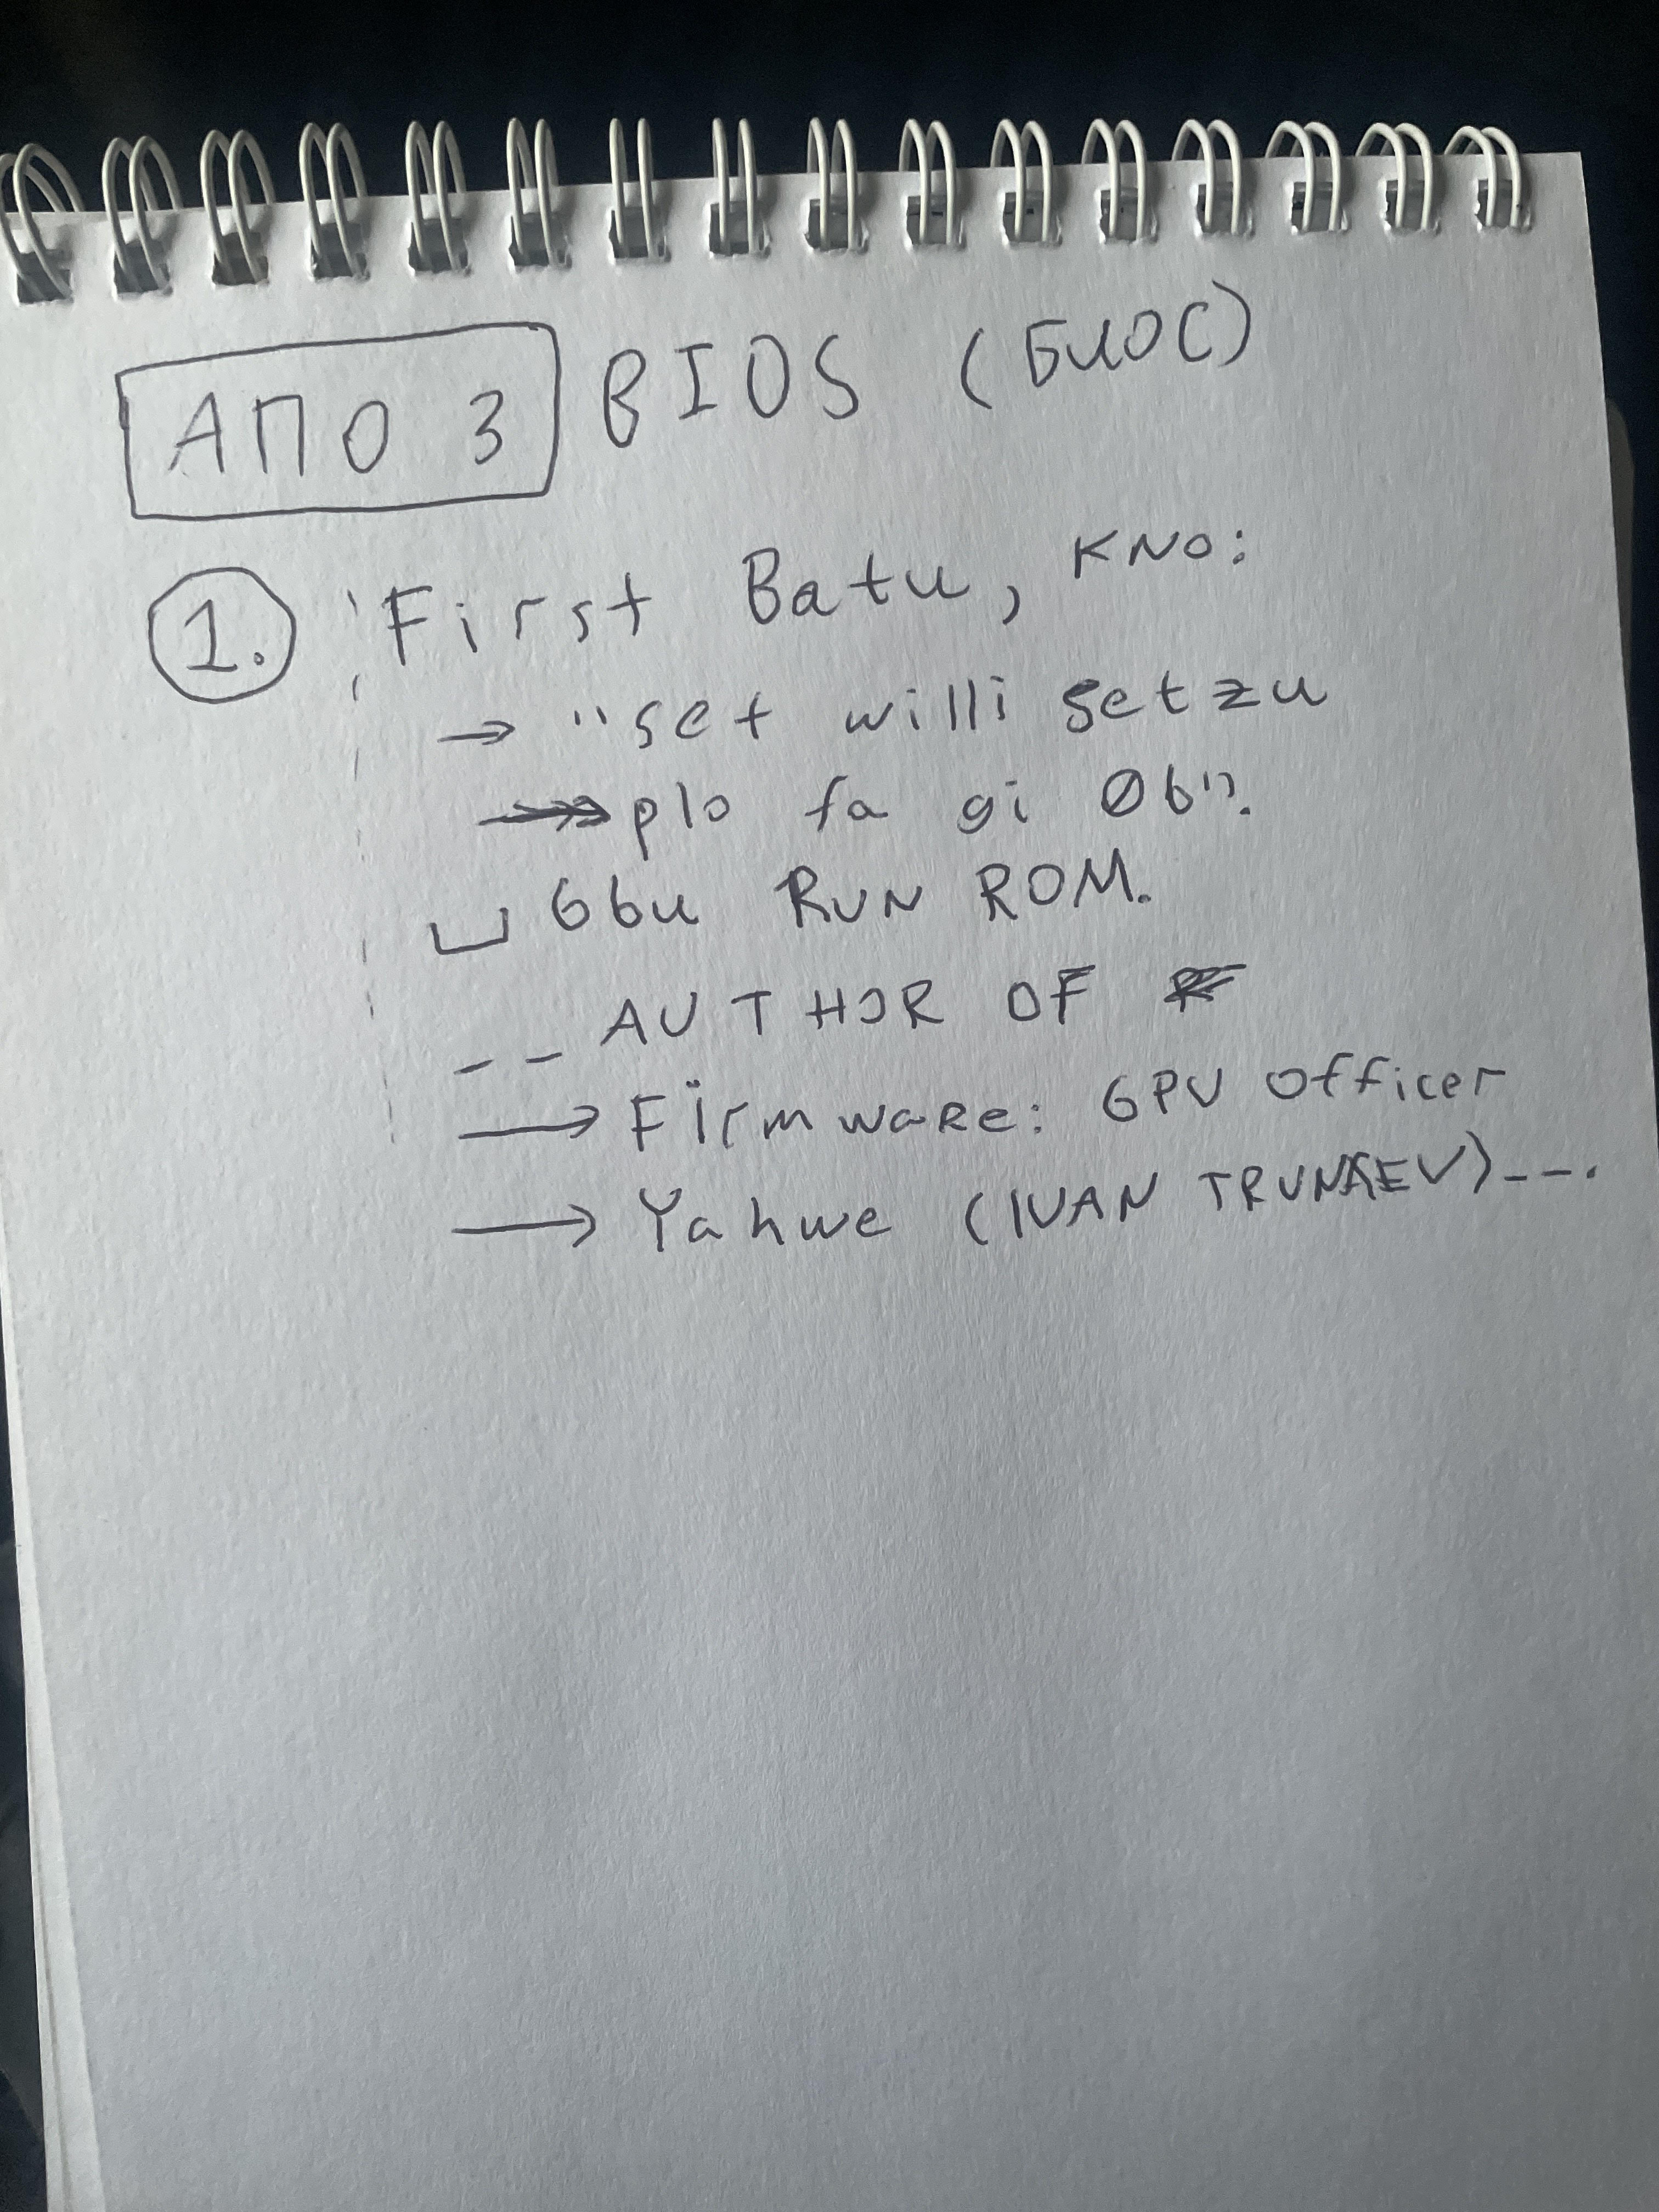 АПО 3 BIOS (БИОС)
1. First Batu, KNO:
→ "set willi setzu
plo fa gi 06".
Gbu RUN ROM.
-- AUTHOR OF
→ Firmware: GPU Officer
→ Yahwe (IVAN TRUNAEV)---.